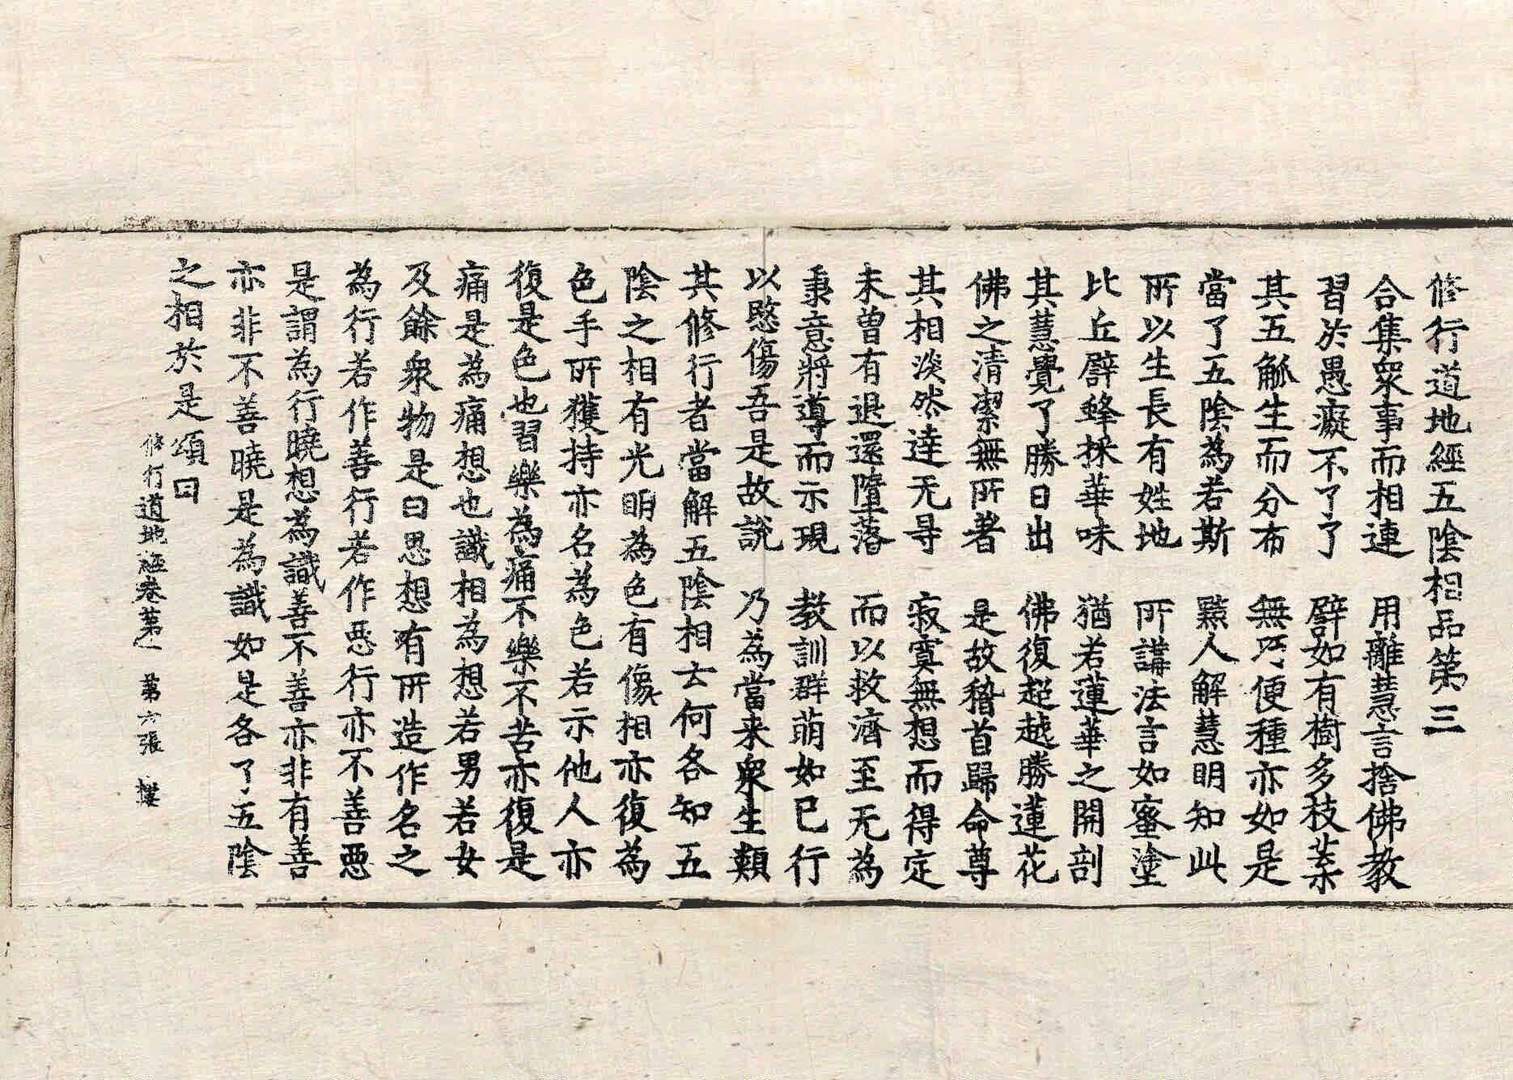 修行道地經五陰相品第三
合集衆事而相連　用離慧言捨佛教
習於愚癡不了了　譬如有樹多枝葉
其五觚生而分布　無巧便種亦如是
當了五陰為若斯　黠人解慧明知此
所以生長有姓地　所講法言如蜜塗
比丘譬蜂採華味　猶若蓮華之開剖
其慧覺了勝日出　佛復超越勝蓮花
佛之清潔無所著　是故稽首歸命尊
其相淡然逹无㝵　寂寞無想而得定
未曾有退還墮落　而以救濟至无為
秉意將導而示現　教訓群萌如已行
以愍傷吾是故説　乃為當来衆生類
其修行者當解五陰相云何各知五
陰之相有光明為色有像相亦復為
色手所獲持亦名為色若示他人亦
復是色也習樂為痛不樂不苦亦復是
痛是為痛想也識相為想若男若女
及餘衆物是曰思想有所造作名之
為行若作善行若作惡行亦不善惡
是謂為行曉想為識善不善亦非有善
亦非不善曉是為識如是各了五陰
之相於是頌曰
修行道地經卷第一　第六張　樓